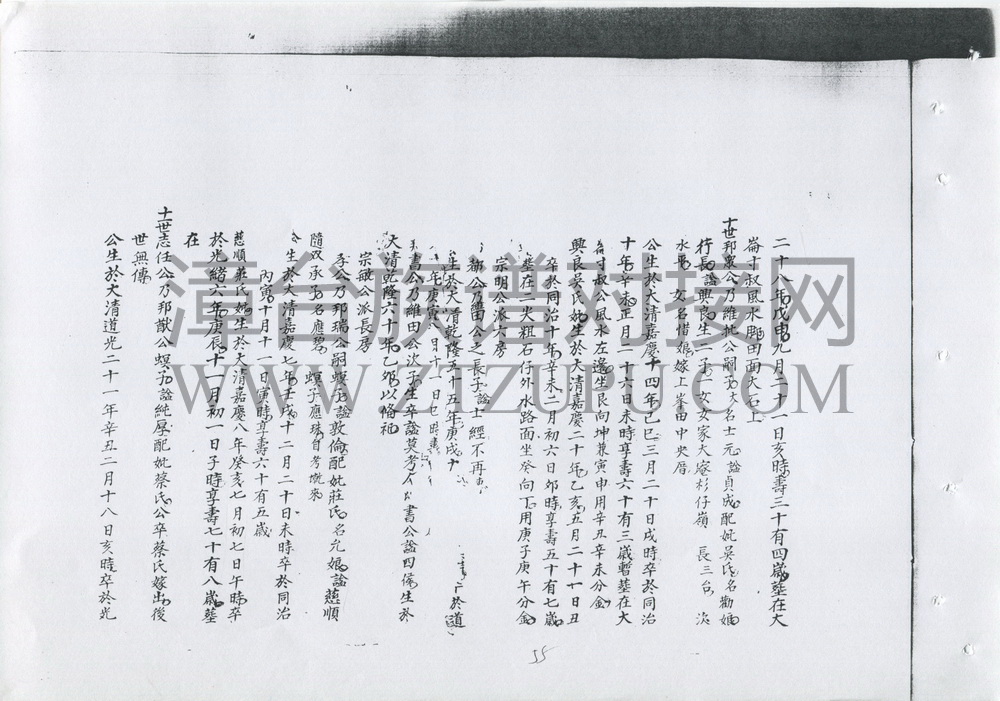 二十八年戊申九月二十一日亥時壽三十有四歲塟在大
崙寸叔風水脚田面大石上
十世邦 公乃維 公嗣子大名士元謚貞成配妣吳氏名勸娘
行長謚興良生二子一女女家大 杉仔嶺 長三台 次
水 女名惜娘嫁上峯田中央厝
公生於大清嘉慶十四年己巳三月二十日戌時卒於同治
十年辛未正月二十六日未時享壽六十有三歲暫塟在大
崙寸叔公風水左邊坐艮向坤兼寅申用辛丑辛未分金
興良吳氏妣生於大清嘉慶二十年乙亥五月二十一日丑
卒於同治十年辛未二月初六日卯時享壽五十有七歲
塟在二尖粗石仔外水路面坐癸向丁用庚子庚午分金
宗明公派六房
公乃 田公之長子謚士經不再
生於大清乾隆五十五年庚戌 於道
年庚寅 月十一日巳時壽
書公乃維田公次子生卒謚莫考 書公謚四倫生於
大清乾隆六十年乙卯以俻祀
宗敏公派長房
李公乃邦瑞公嗣螟子謚敦倫配妣莊氏名允娘謚慈順
隨双承子名應碧 螟子應珠自考 來
公生於大清嘉慶七年壬戌十二月二十日未時卒於同治
丙寅十月十一日寅時享壽六十有五歲
慈順莊氏妣生於大清嘉慶八年癸亥七月初七日午時卒
於光緒六年庚辰十一月初一日子時享壽七十有八歲塟
在
十一世志任公乃邦猷公螟子謚純厚配妣蔡氏公卒蔡氏嫁出後
世無傳
公生於大清道光二十一年辛丑二月十八日亥時卒於光
55
漳台族谱对接网
WWW.ZTZUPU.COM